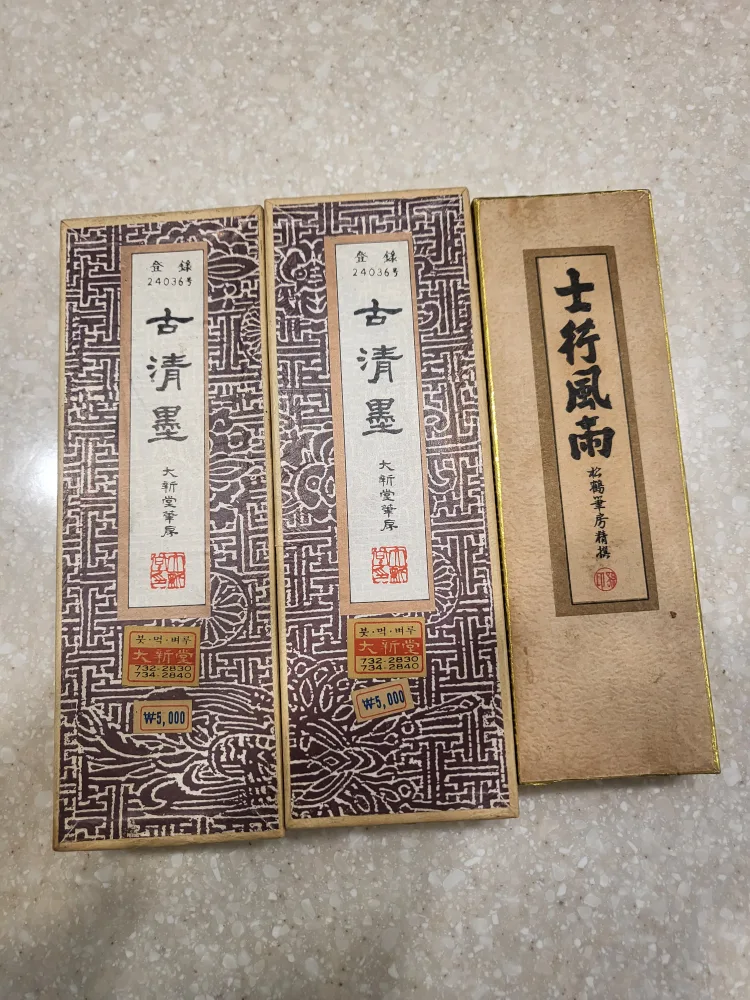 登錄
24036号
古清墨
大新堂筆房
大新堂印
붓·먹·벼루
大新堂
732-2830
734-2840
₩5,000
登錄
24036号
古清墨
大新堂筆房
大新堂印
붓·먹·벼루
大新堂
732-2830
734-2840
₩5,000
士行風雨
松鶴筆房精撰